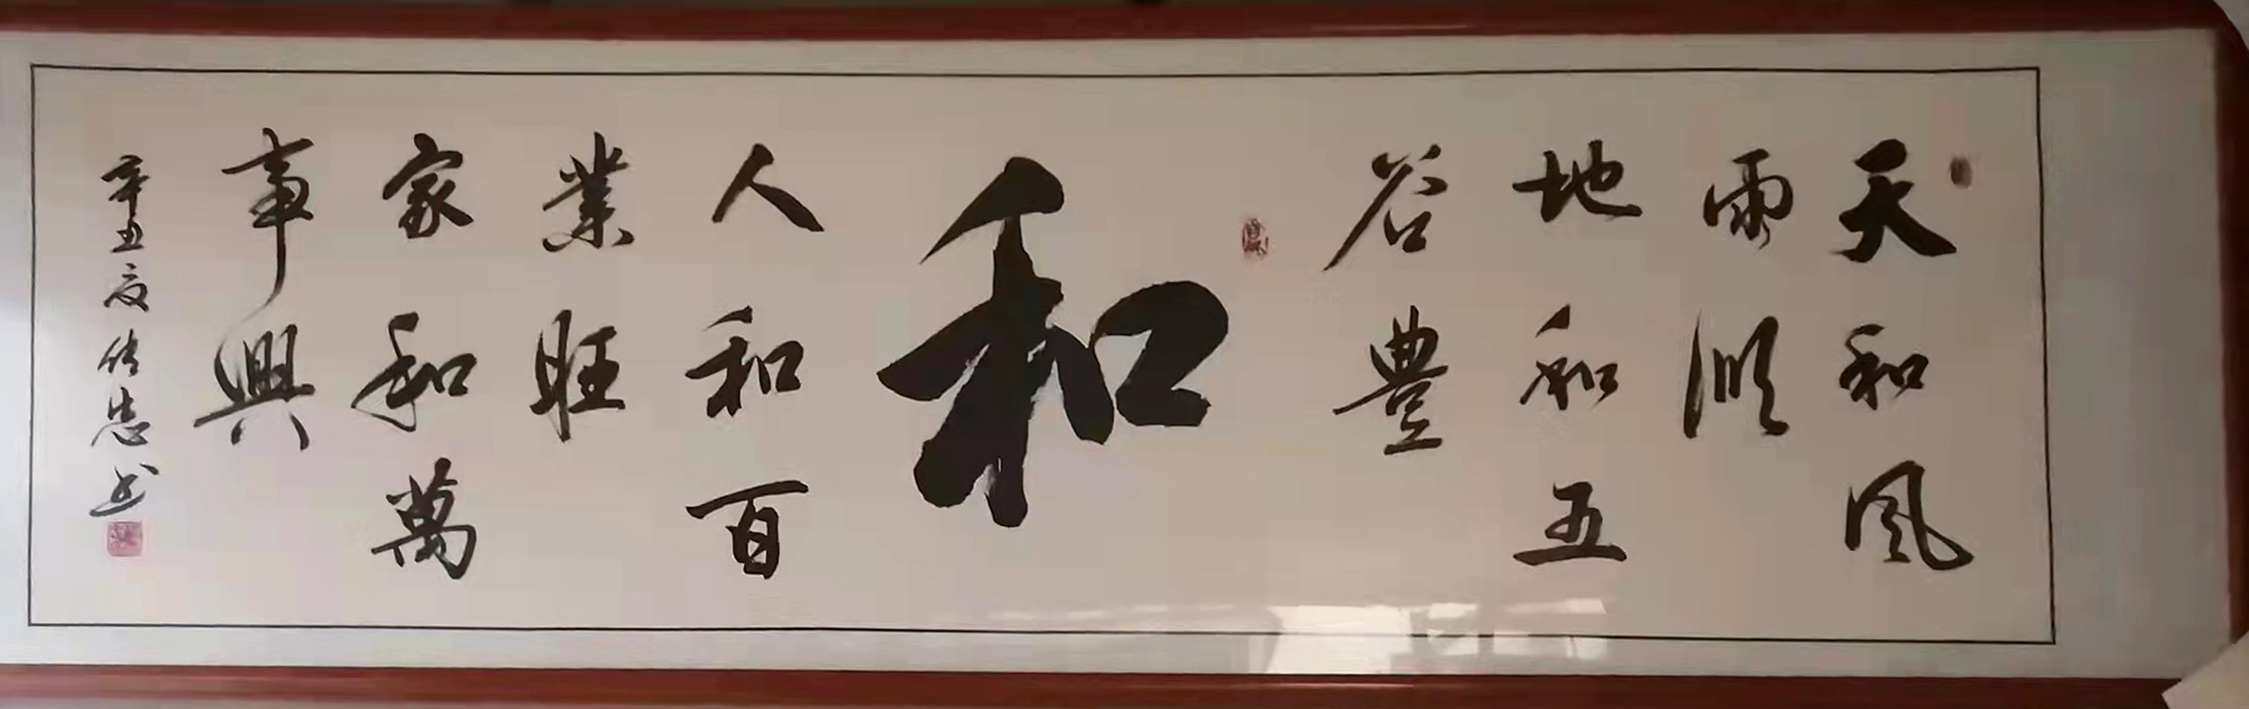 天和風
雨順
地和五
谷豐
和
人和百
業旺
家和萬
事興
辛丑夏 忠书